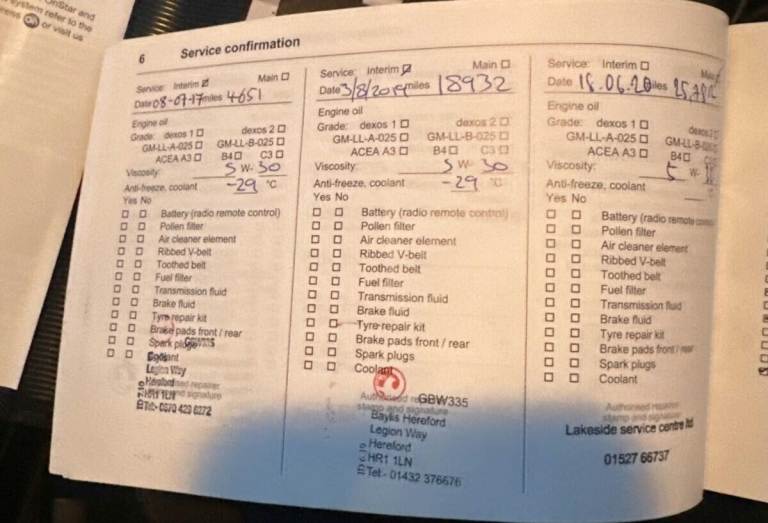 OnStar and
system refer to the
or visit us
6 Service confirmation
Service: Interim ☑ Main ☐
Date 08-07-17 miles 4651
Engine oil
Grade: dexos 1 ☐ dexos 2 ☐
GM-LL-A-025 ☐ GM-LL-B-025 ☐
ACEA A3 ☐ B4 ☐ C3 ☐
Viscosity: 5 W- 30
Anti-freeze, coolant -29 °C
Yes No
☐ ☐ Battery (radio remote control)
☐ ☐ Pollen filter
☐ ☐ Air cleaner element
☐ ☐ Ribbed V-belt
☐ ☐ Toothed belt
☐ ☐ Fuel filter
☐ ☐ Transmission fluid
☐ ☐ Brake fluid
☐ ☐ Tyre repair kit
☐ ☐ Brake pads front / rear
☐ ☐ Spark plugs
☐ ☐ Coolant
Legion Way
Hereford
HR1 1LN
Tel:- 0870 423 6272
Service: Interim ☑ Main ☐
Date 3/8/2019 miles 18932
Engine oil
Grade: dexos 1 ☐ dexos 2 ☐
GM-LL-A-025 ☐ GM-LL-B-025 ☐
ACEA A3 ☐ B4 ☐ C3 ☐
Viscosity: 5 W- 30
Anti-freeze, coolant -29 °C
Yes No
☐ ☐ Battery (radio remote control)
☐ ☐ Pollen filter
☐ ☐ Air cleaner element
☐ ☐ Ribbed V-belt
☐ ☐ Toothed belt
☐ ☐ Fuel filter
☐ ☐ Transmission fluid
☐ ☐ Brake fluid
☐ ☐ Tyre repair kit
☐ ☐ Brake pads front / rear
☐ ☐ Spark plugs
☐ ☐ Coolant
GBW335
stamp and signature
Baylis Hereford
Legion Way
Hereford
HR1 1LN
Tel:- 01432 376676
Service: Interim ☐ Main
Date 18.06.20 miles
Engine oil
Grade: dexos 1 ☐ dexos 2 ☐
GM-LL-A-025 ☐ GM-LL-B-025
ACEA A3 ☐ B4 ☐
Viscosity: 5 W-
Anti-freeze, coolant
Yes No
☐ ☐ Battery (radio remote
☐ ☐ Pollen filter
☐ ☐ Air cleaner element
☐ ☐ Ribbed V-belt
☐ ☐ Toothed belt
☐ ☐ Fuel filter
☐ ☐ Transmission fluid
☐ ☐ Brake fluid
☐ ☐ Tyre repair kit
☐ ☐ Brake pads front / rear
☐ ☐ Spark plugs
☐ ☐ Coolant
Authorised repairer
stamp and signature
Lakeside service centre ltd
01527 66737